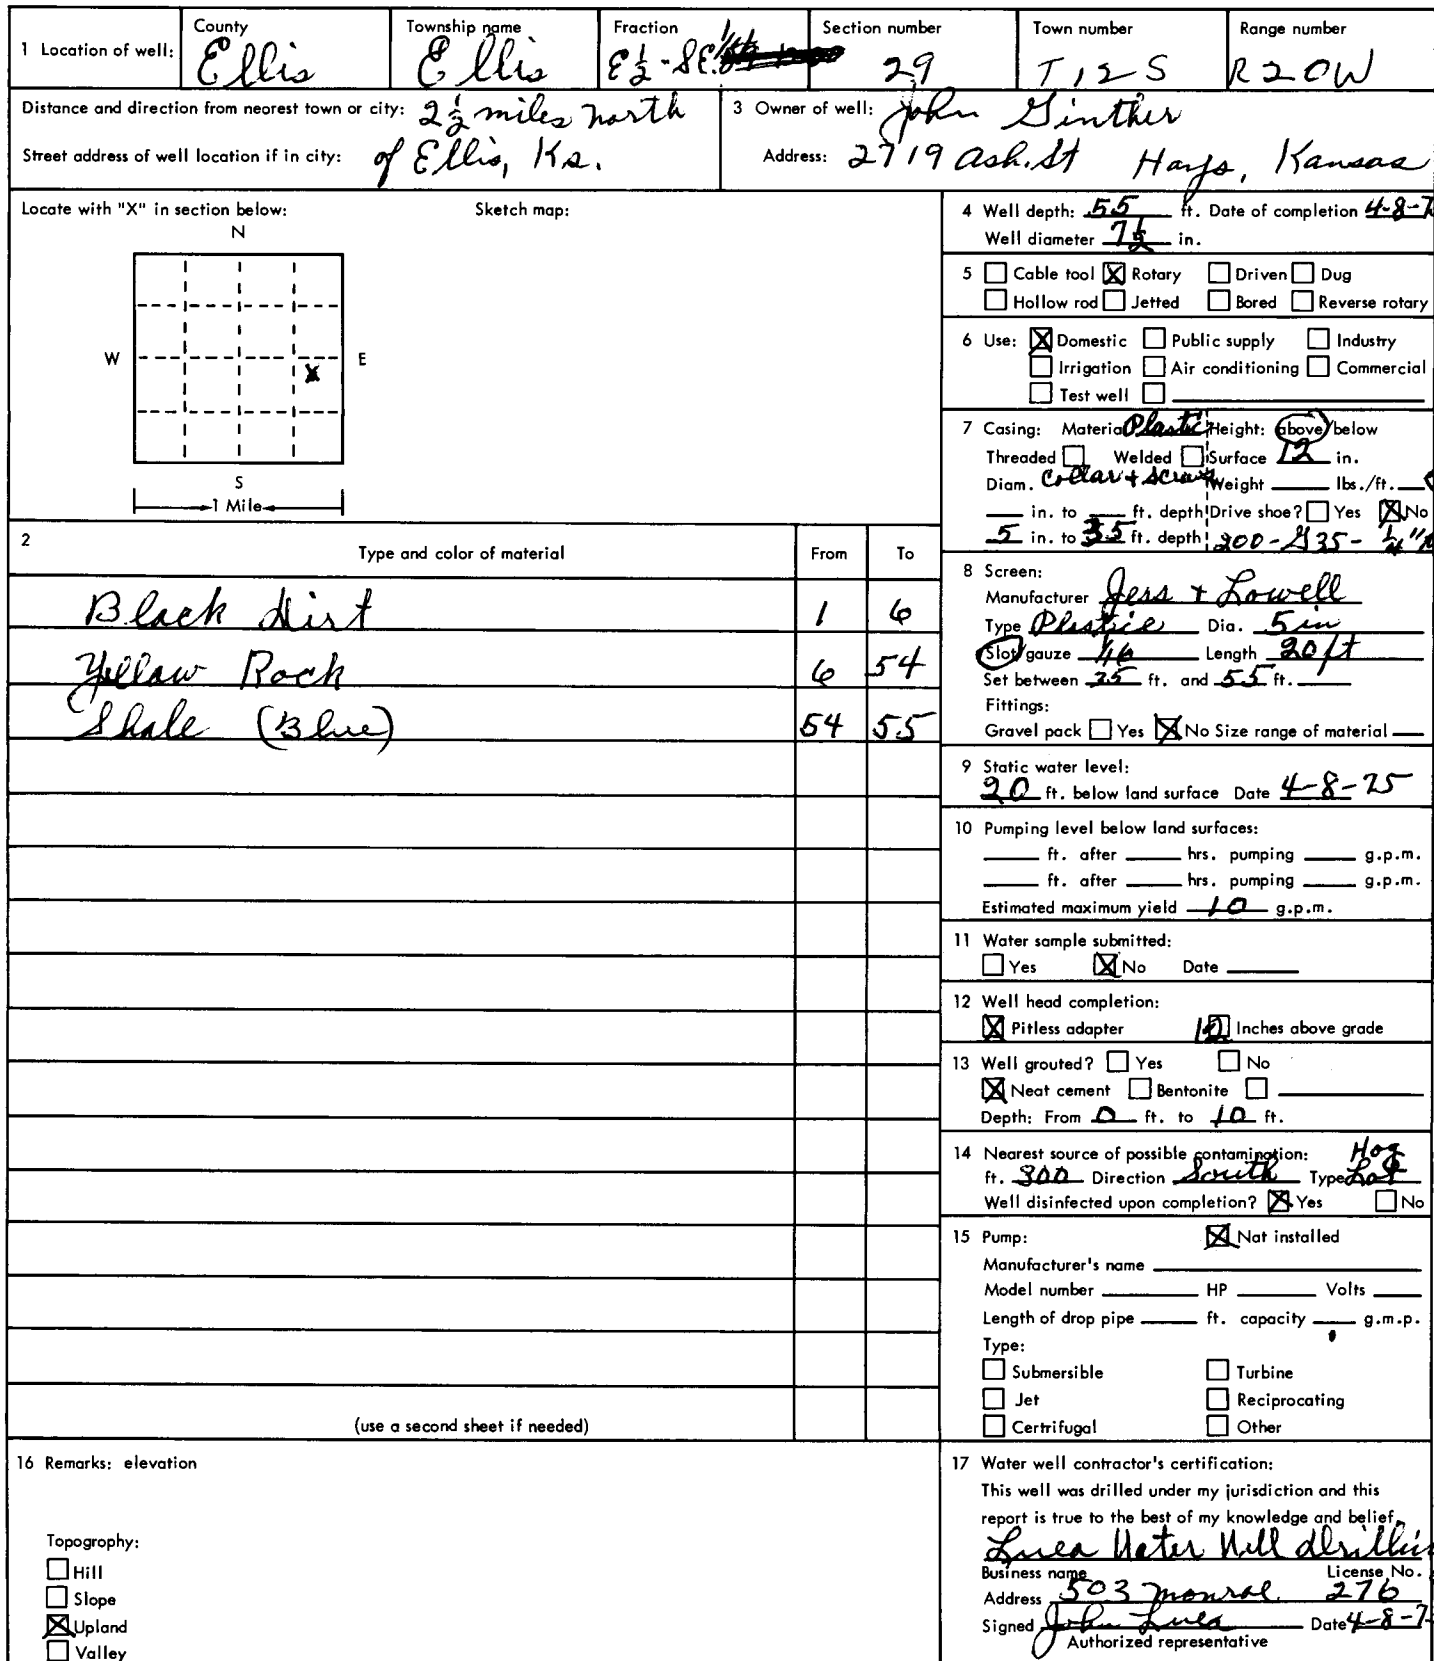 1 Location of well: County Ellis Township name Ellis Fraction E½-SE¼ Section number 29 Town number T12S Range number R20W
Distance and direction from nearest town or city: 2½ miles north
Street address of well location if in city: of Ellis, Ks.
3 Owner of well: John Ginther
Address: 2719 Ash.St Hays, Kansas
Locate with "X" in section below: Sketch map:
N
W X E
S
1 Mile
2 Type and color of material From To
Black Dirt 1 6
Yellow Rock 6 54
Shale (Blue) 54 55
(use a second sheet if needed)
4 Well depth: 55 ft. Date of completion 4-8-7
Well diameter 7½ in.
5 Cable tool X Rotary Driven Dug
Hollow rod Jetted Bored Reverse rotary
6 Use: X Domestic Public supply Industry
Irrigation Air conditioning Commercial
Test well
7 Casing: Material Plastic Height: above/below
Threaded Welded Surface 12 in.
Diam. Collar + Screws Weight lbs./ft.
in. to ft. depth Drive shoe? Yes X No
5 in. to 35 ft. depth 200-
8 Screen:
Manufacturer Jess + Lowell
Type Plastic Dia. 5 in
Slot/gauze 1/16 Length 20 ft
Set between 35 ft. and 55 ft.
Fittings:
Gravel pack Yes X No Size range of material
9 Static water level:
20 ft. below land surface Date 4-8-75
10 Pumping level below land surfaces:
ft. after hrs. pumping g.p.m.
ft. after hrs. pumping g.p.m.
Estimated maximum yield 10 g.p.m.
11 Water sample submitted:
Yes X No Date
12 Well head completion:
X Pitless adapter 12 Inches above grade
13 Well grouted? Yes No
X Neat cement Bentonite
Depth: From 0 ft. to 10 ft.
14 Nearest source of possible contamination: Hog
ft. 300 Direction South Type Lot
Well disinfected upon completion? X Yes No
15 Pump: X Nat installed
Manufacturer's name
Model number HP Volts
Length of drop pipe ft. capacity g.m.p.
Type:
Submersible Turbine
Jet Reciprocating
Certrifugal Other
16 Remarks: elevation
Topography:
Hill
Slope
X Upland
Valley
17 Water well contractor's certification:
This well was drilled under my jurisdiction and this
report is true to the best of my knowledge and belief.
Luea Water Well
Business name License No.
Address 503 Monroe 276
Signed John Luea Date 4-8-7
Authorized representative